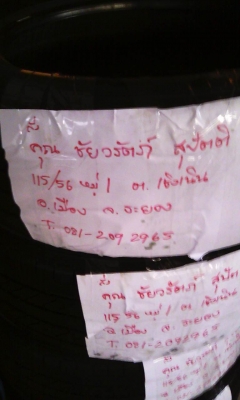 ส่ง
คุณ ชัยวรัตเภา สุปัตติ
115/56 หมู่ 1 ต. เชิงเนิน
อ. เมือง จ. ระยอง
T. 081-209 2965
ส่ง
คุณ ชัยวรัตเภา
115/56 หมู่ 1 ต. เชิงเนิน
อ. เมือง จ. ระยอง
T. 081-2092965
คุณ
115/56 หมู่ 1
อ. เมือง